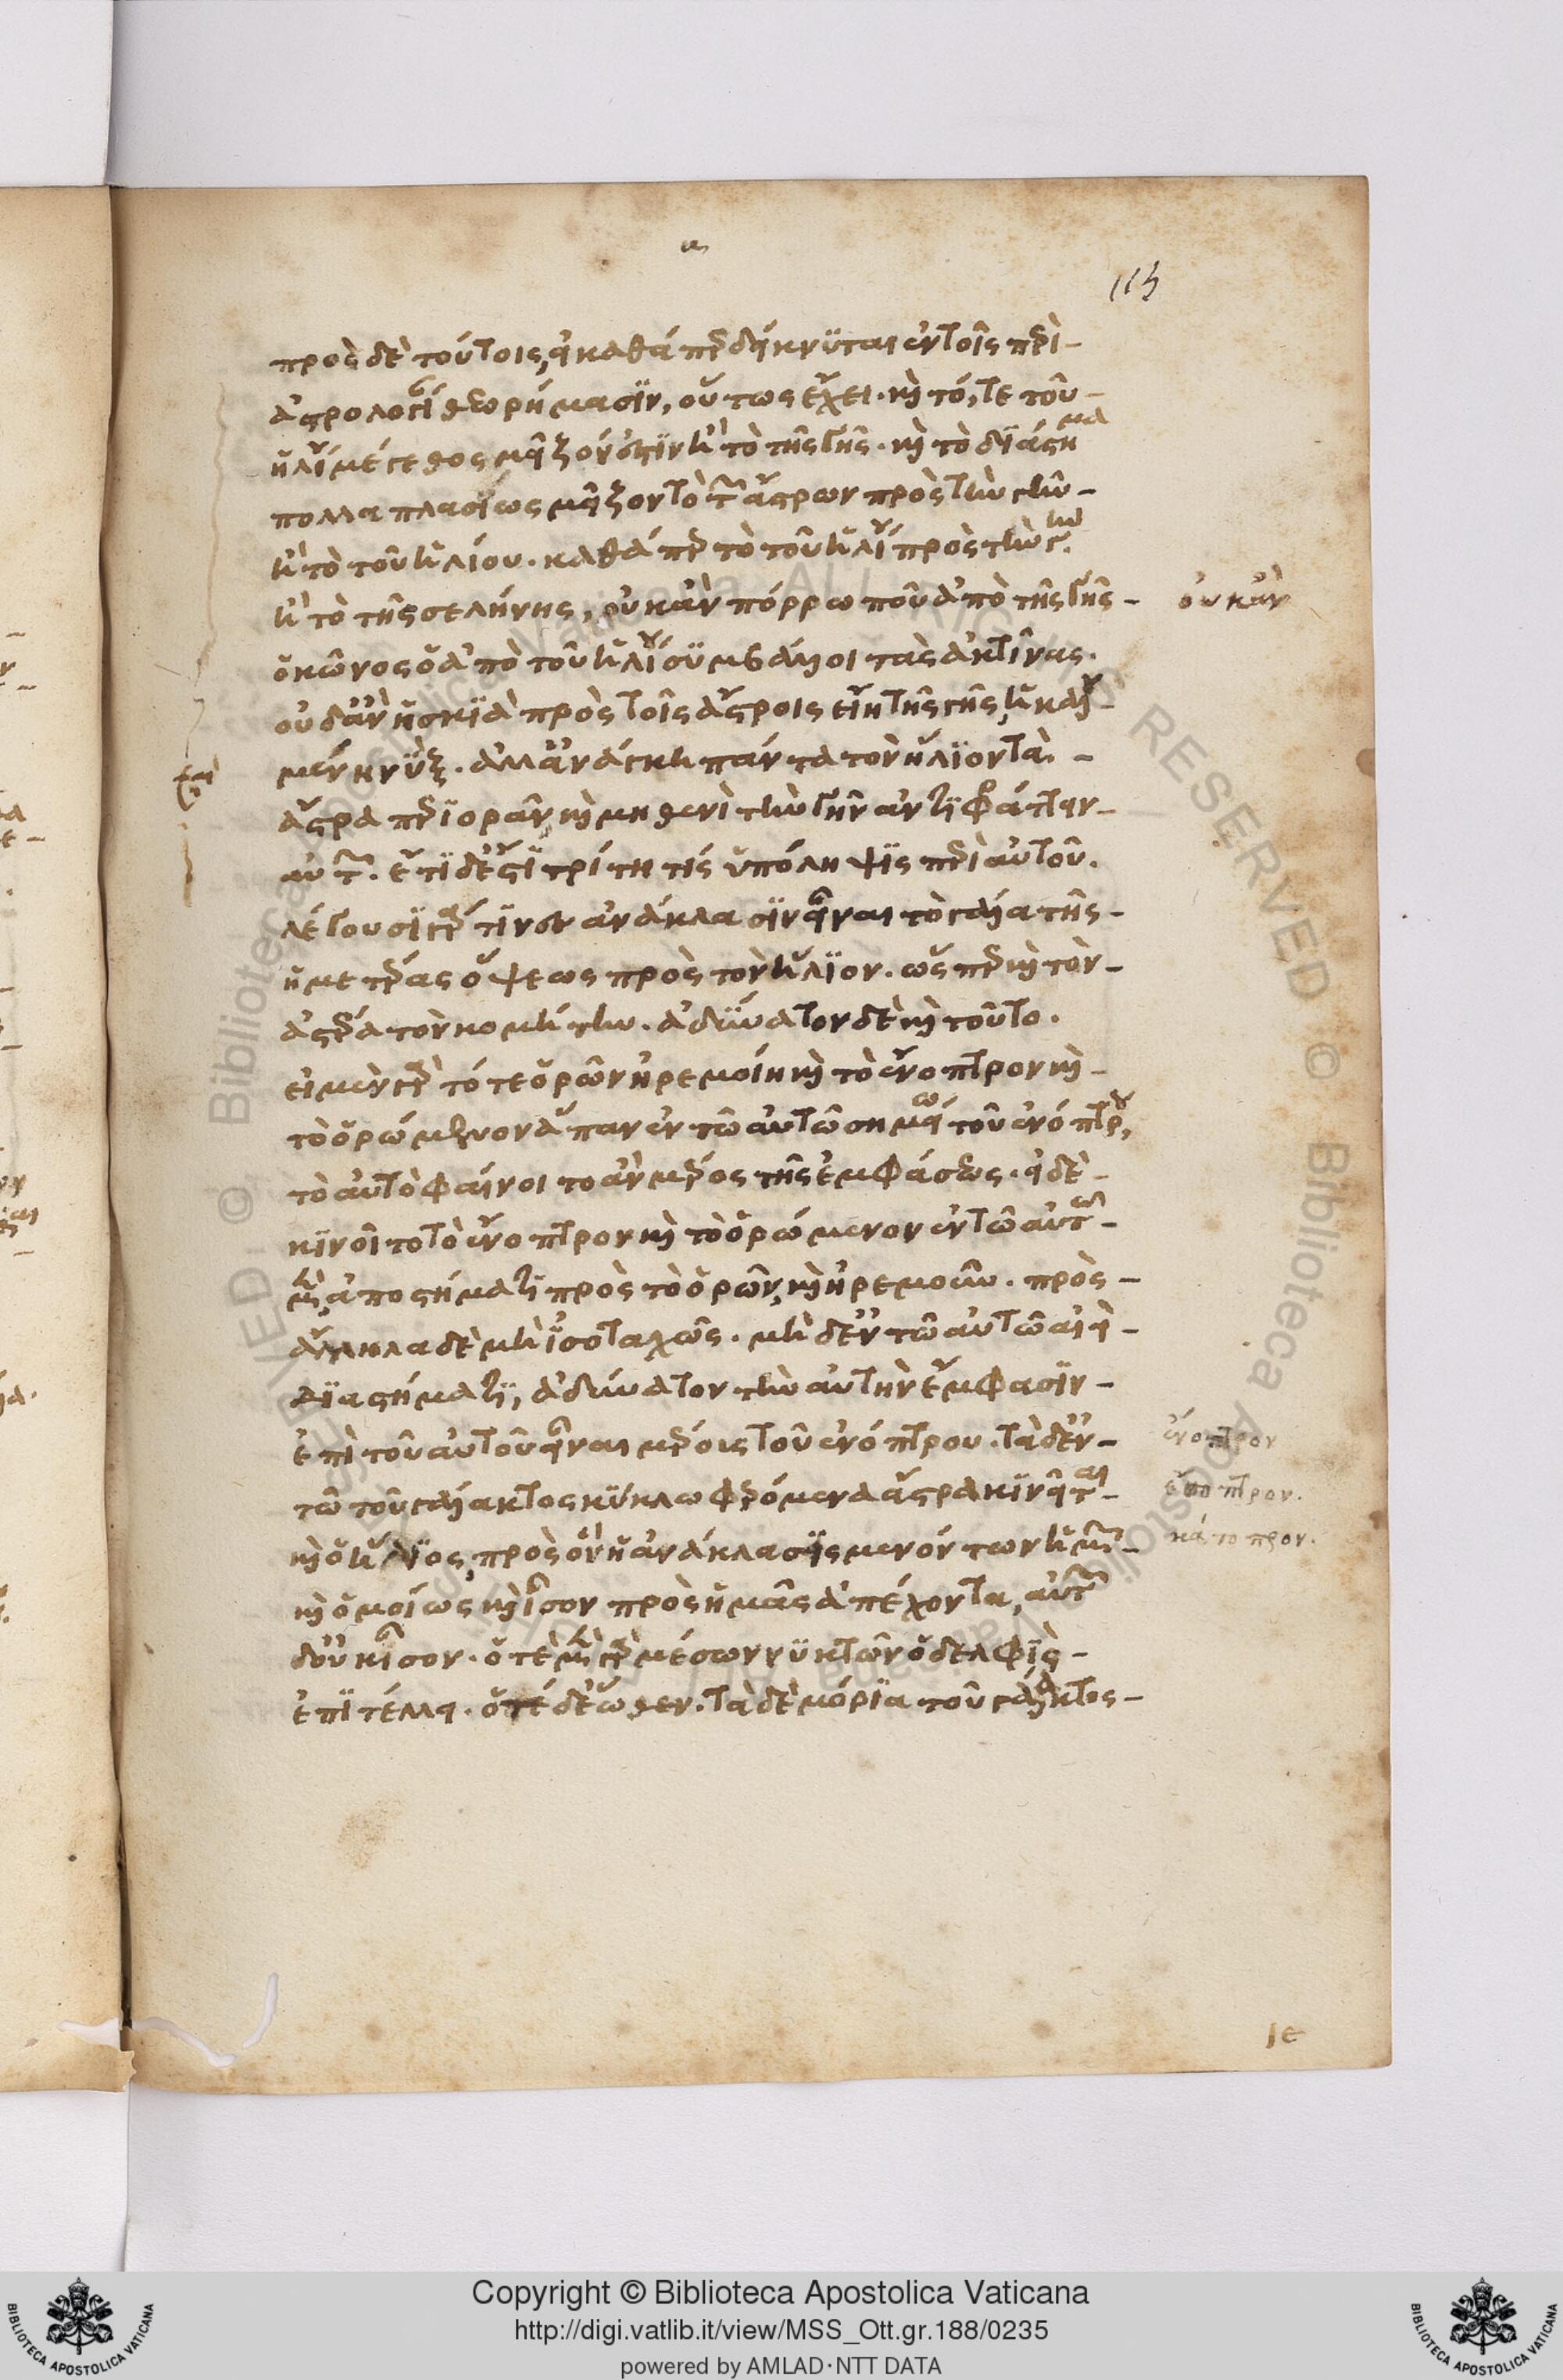 115
πρὸς δὲ τούτοις, εἰ καθάπερ δείκνϋται ἐν τοῖς περὶ -
ἀστρολογίας θεωρήμασϊν, οὕτως ἔχει. καὶ τό, τε τοῦ -
ἡλίου μέγεθος μεῖζόν ἐστϊν ἢ τὸ τῆς γῆς. καὶ τὸ δϊάστημα
πολλαπλασίως μεῖζον τὸ τῶν ἄστρων πρὸς τὴν γῆν -
ἢ τὸ τοῦ ἡλίου. καθάπερ τὸ τοῦ ἡλίου πρὸς τὴν γῆν.
ἢ τὸ τῆς σελήνης, οὐκ ἂν πόρρω που ἀπὸ τῆς γῆς -
ὁ κῶνος ὁ ἀπὸ τοῦ ἡλίου σϋμβάλλοι τὰς ἀκτῖνας.
οὐδ' ἂν ἡ σκϊὰ πρὸς τοῖς ἄστροις εἴη τῆς γῆς, ἡ καλου -
μένη νὺξ. ἀλλ' ἀνάγκη πάντα τὸν ἥλϊον τὰ -
ἄστρα περϊορᾶν καὶ μηδενὶ τὴν γῆν ἀντϊφράττειν -
αὐτῶν. ἔτϊ δ' ἐστϊ τρίτη τίς ὑπόληψϊς περὶ αὐτοῦ.
λέγουσϊ γάρ τϊνες ἀνάκλασϊν εἶναι τὸ γάλα τῆς -
ἡμετέρας ὄψεως πρὸς τὸν ἥλϊον. ὥσπερ καὶ τὸν -
ἀστέρα τὸν κομήτην. ἀδύνατον δὲ καὶ τοῦτο.
εἰ μὲν γὰρ τό τε ὁρῶν ἠρεμοίη καὶ τὸ ἔνοπτρον καὶ -
τὸ ὁρώμενον ἅπαν ἐν τῶ αὐτῶ σημείω τοῦ ἐνόπτρου,
τὸ αὐτὸ φαίνοιτο ἂν μέρος τῆς ἐμφάσεως. εἰ δὲ -
κϊνοῖτο τὸ ἔνοπτρον καὶ τὸ ὁρώμενον ἐν τῶ αὐτῶ -
μὲν ἀποστήματϊ πρὸς τὸ ὁρῶν, καὶ ἠρεμοῦν. πρὸς -
ἄλληλα δὲ μὴ ἰσοταχῶς. μὴ δ' ἐν τῶ αὐτῶ αἰεὶ -
δϊαστήματϊ, ἀδύνατον τὴν αὐτὴν ἔμφασϊν -
ἐπὶ τοῦ αὐτοῦ εἶναι μέρους τοῦ ἐνόπτρου. τὰ δ' ἐν -
τῶ τοῦ γάλακτος κύκλω φερόμενα ἄστρα κϊνεῖται -
καὶ ὁ ἥλϊος, πρὸς ὃν ἡ ἀνάκλασϊς μενόντων ἡμῶν -
καὶ ὁμοίως καὶ ἴσον πρὸς ἡμᾶς ἀπέχοντα, αὐτῶν
δ' οὐκ ἴσον. ὁτὲ μὲν γὰρ μέσων νϋκτῶν ὁ δελφϊς -
ἐπϊτέλλει. ὁτέ δ' ἕωθεν. τὰ δὲ μόρϊα τοῦ γάλακτος -
οὐκ ἂν
ἔνοπτρον
ἔσοπτρον.
κάτοπτρον.
ιε
Copyright © Biblioteca Apostolica Vaticana
http://digi.vatlib.it/view/MSS_Ott.gr.188/0235
powered by AMLAD·NTT DATA